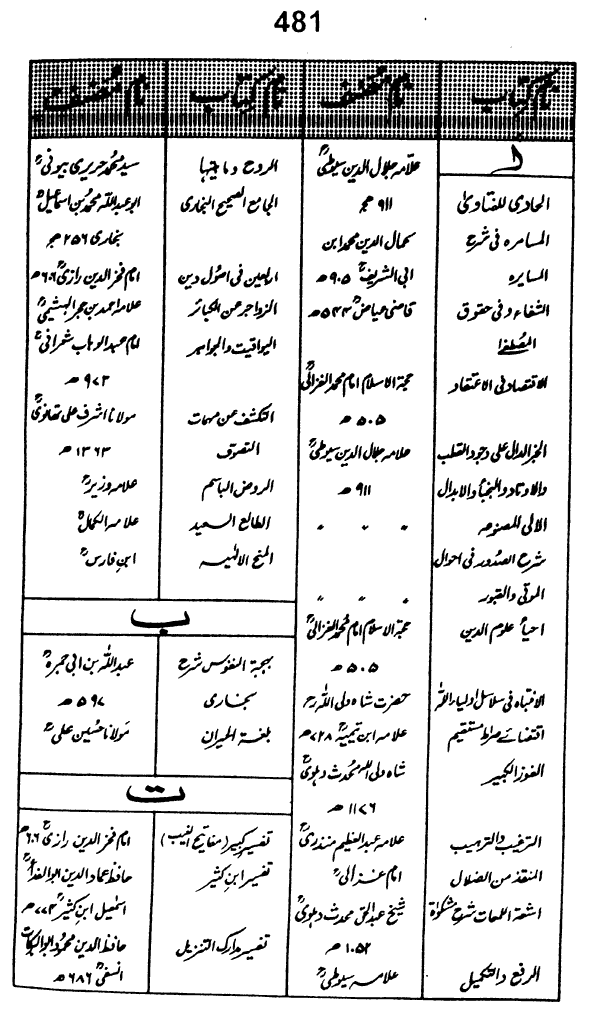 481
نام کتاب نام مصنف نام کتاب نام مصنف
ا
الحاوی للفتاویٰ علامہ جلال الدین سیوطیؒ
۹۱۱ ھ
المسامرہ فی شرح کمال الدین محمد ابن
المسایرہ ابی الشریفؒ ۹۰۵ ھ
الشفاء فی حقوق قاضی عیاضؒ ۵۴۴ ھ
المصطفٰا
الاقتصاد فی الاعتقاد حجۃ الاسلام امام محمد الغزالیؒ
۵۰۵ ھ
الخبر الدال علی وجود القطب علامہ جلال الدین سیوطیؒ
والاوتاد والنجبأ والابدال ۹۱۱ ھ
الالی المصنوعہ " " "
شرح الصدور فی احوال
الموتی والقبور " " "
احیأ علوم الدین حجۃ الاسلام امام محمد الغزالیؒ
۵۰۵ ھ
الانتباہ فی سلاسل اولیاء اللہ حضرت شاہ ولی اللہ رح
اقتضائے صراط مستقیم علامہ ابن تیمیہؒ ۷۲۸ ھ
الفوز الکبیر شاہ ولی اللہ محدث دہلویؒ
۱۱۷۶ ھ
الترغیب والترہیب علامہ عبد العظیم منذریؒ
المنقذ من الضلال امام غزالیؒ
اشعۃ اللمعات شرح مشکوٰۃ شیخ عبدالحق محدث دہلویؒ
۱۰۵۲ ھ
الرفع والتکمیل علامہ سیوطیؒ
الروح وماہیتہا سید محمد حریری بیونیؒ
الجامع الصحیح البخاری ابو عبداللہ محمد بن اسماعیلؒ
بخاری ۲۵۶ ھ
اربعین فی اصول دین امام فخر الدین رازیؒ ۶۰۶ ھ
الزواجر عن الکبائر علامہ احمد بن حجر الہیثمیؒ
الیواقیت والجواہر امام عبدالوہاب شعرانیؒ
۹۷۳ ھ
التکشف عن مہمات مولانا اشرف علی تھانویؒ
التصوف ۱۳۶۳ ھ
الروض الباسم علامہ وزیرؒ
الطالع السعید علامہ الکمالؒ
المنح الالٰہیہ ابن فارسؒ
ب
بہجۃ النفوس شرح عبداللہ بن ابی جمرہؒ
بخاری ۵۹۷ ھ
بلغۃ الحیران مولانا حسین علیؒ
ت
تفسیر کبیر (مفاتیح الغیب) امام فخر الدین رازیؒ ۶۰۶
تفسیر ابن کثیر حافظ عماد الدین ابوالفداؒ
اسمٰعیل ابن کثیرؒ ۷۷۴ ھ
تفسیر مدارک التنزیل حافظ الدین محمود ابوالبرکات
النسفیؒ ۶۸۶ ھ